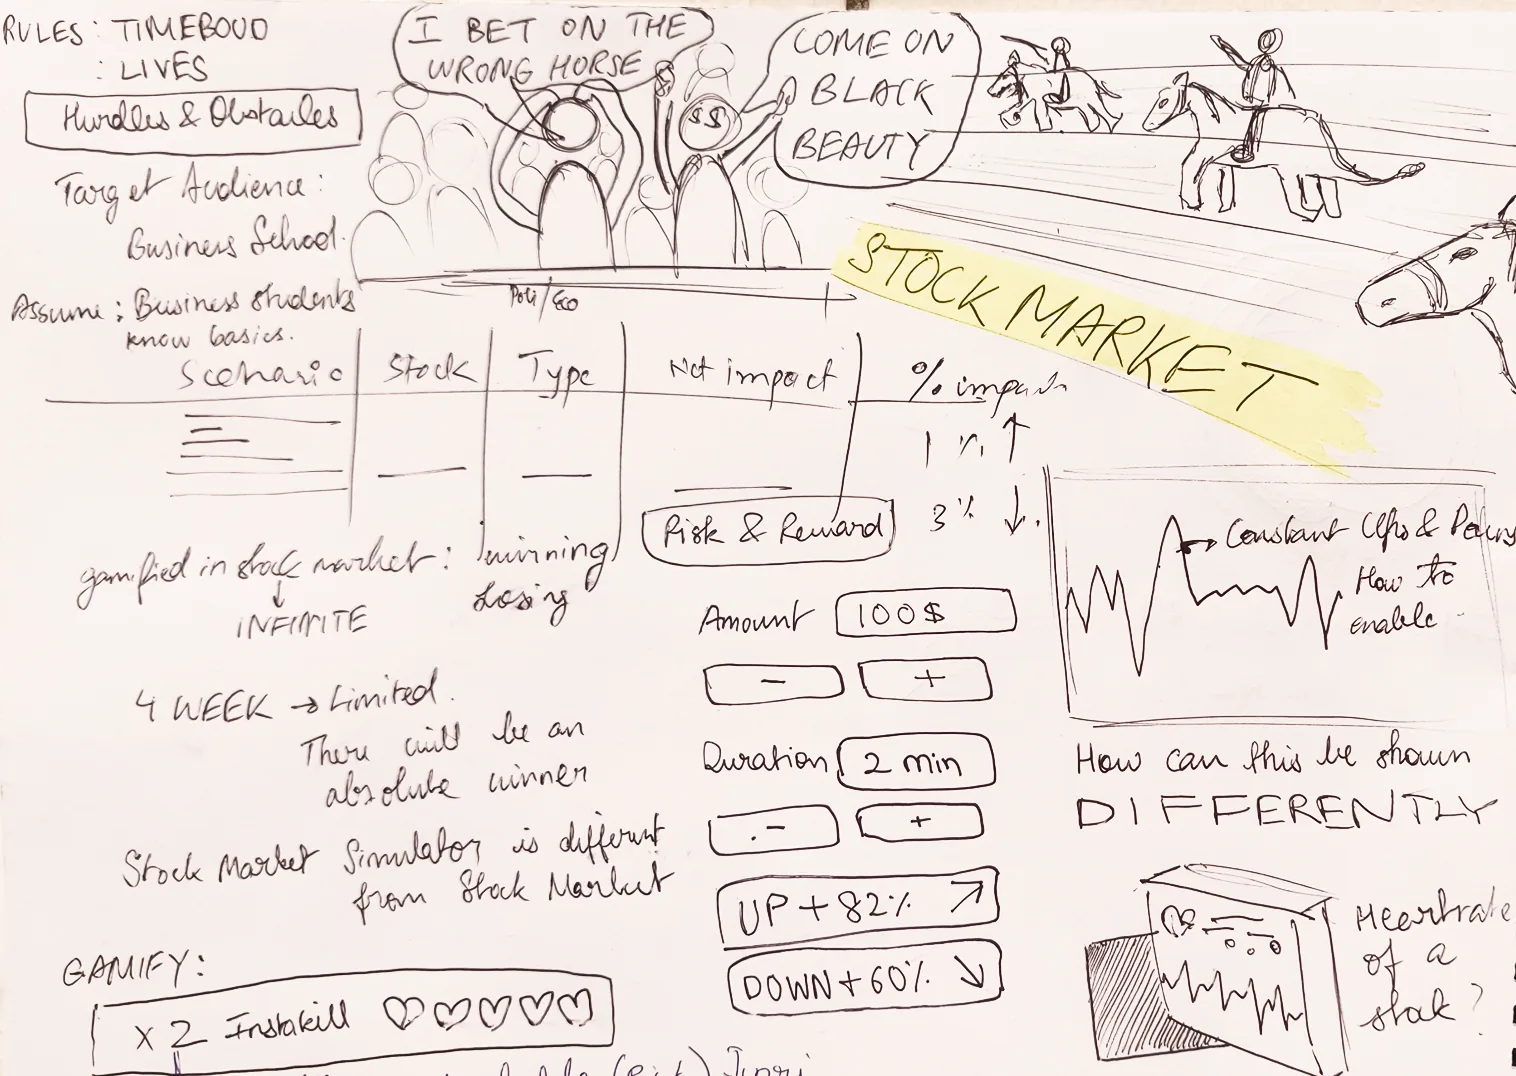 RULES: TIMEBOUD
: LIVES
Hurdles & Obstacles
Target Audience:
Business School.
Assume: Business students
know basics.
I BET ON THE
WRONG HORSE
$$
COME ON
BLACK
BEAUTY
STOCK MARKET
Poli/Eco
Scenario Stock Type Net impact % impact
1% ↑
3% ↓.
Risk & Reward
gamified in stock market: winning
losing
↓
INFINITE
4 WEEK → Limited.
There will be an
absolute winner
Stock Market Simulator is different
from Stock Market
GAMIFY:
x 2 Instakill ♡♡♡♡♡
Amount 100$
- +
Duration 2 min
- +
UP + 82% ↗
DOWN + 60% ↘
→ Constant Ups &
How to
enable
How can this be shown
DIFFERENTLY
Heartrate
of a
stock?